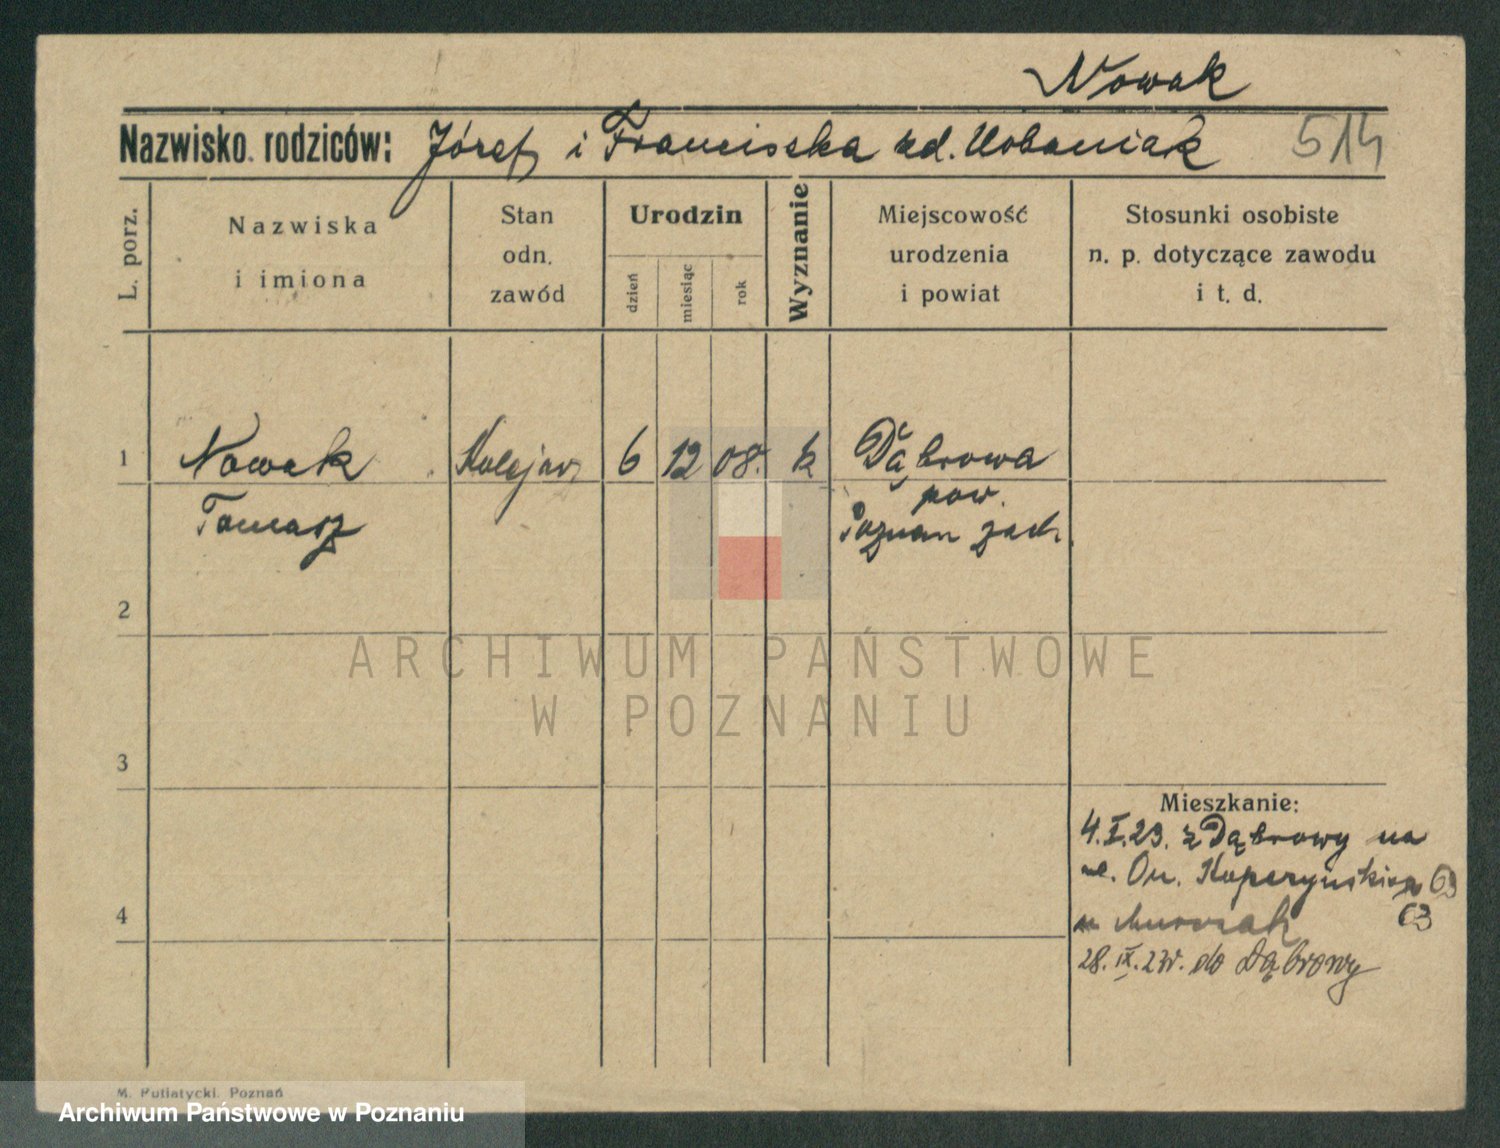 Nowak
Nazwisko rodziców: Józef i Franciszka zd. Urbaniak 514
L. porz.
Nazwiska
i imiona
Stan
odn.
zawód
Urodzin
dzień
miesiąc
rok
Wyznanie
Miejscowość
urodzenia
i powiat
Stosunki osobiste
n. p. dotyczące zawodu
i t. d.
1 Nowak Kolejarz 6 12 08. k Dąbrowa
Tomasz
pow.
Poznań zach.
2
ARCHIWUM PAŃSTWOWE
W POZNANIU
3
Mieszkanie:
4. I. 23. z Dąbrowy na
ul. 63
4
63
28. IX. 23r. do Dąbrowy
M. Putiatycki. Poznań
Archiwum Państwowe w Poznaniu